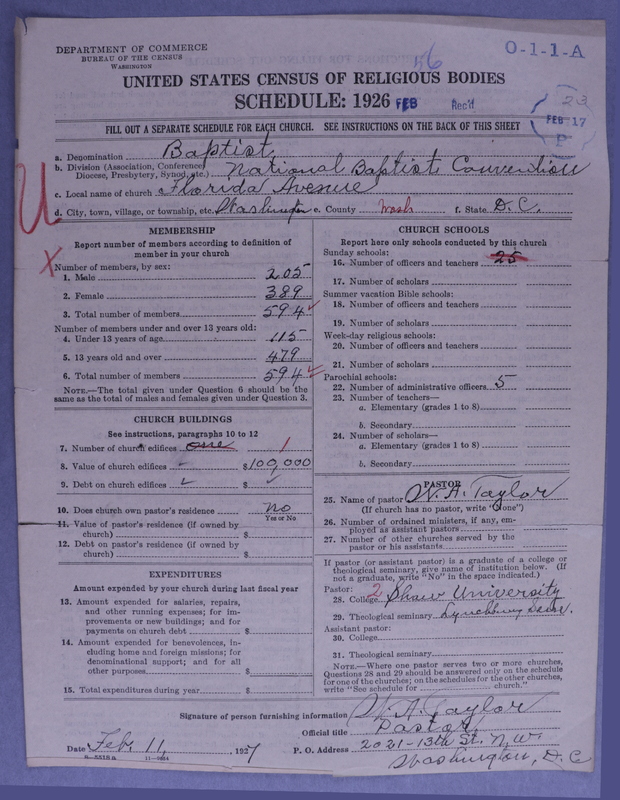 DEPARTMENT OF COMMERCE
BUREAU OF THE CENSUS
WASHINGTON
56
O-1-1-A
UNITED STATES CENSUS OF RELIGIOUS BODIES
SCHEDULE: 1926 FEB Rec'd
23
FEB 17
P
FILL OUT A SEPARATE SCHEDULE FOR EACH CHURCH. SEE INSTRUCTIONS ON THE BACK OF THIS SHEET
a. Denomination Baptist
b. Division (Association, Conference, Diocese, Presbytery, Synod, etc.) National Baptist Convention
c. Local name of church Florida Avenue
d. City, town, village, or township, etc. Washington e. County Wash f. State D.C.
MEMBERSHIP
Report number of members according to definition of
member in your church
X
Number of members, by sex:
1. Male 205
2. Female 389
3. Total number of members 594
Number of members under and over 13 years old:
4. Under 13 years of age 115
5. 13 years old and over 479
6. Total number of members 594
NOTE.—The total given under Question 6 should be the
same as the total of males and females given under Question 3.
CHURCH BUILDINGS
See instructions, paragraphs 10 to 12
7. Number of church edifices one 1
8. Value of church edifices $100,000
9. Debt on church edifices $
10. Does church own pastor's residence No
Yes or No
11. Value of pastor's residence (if owned by
church) $
12. Debt on pastor's residence (if owned by
church) $
EXPENDITURES
Amount expended by your church during last fiscal year
13. Amount expended for salaries, repairs,
and other running expenses; for im-
provements or new buildings; and for
payments on church debt $
14. Amount expended for benevolences, in-
cluding home and foreign missions; for
denominational support; and for all
other purposes $
15. Total expenditures during year $
CHURCH SCHOOLS
Report here only schools conducted by this church
Sunday schools:
16. Number of officers and teachers 25
17. Number of scholars
Summer vacation Bible schools:
18. Number of officers and teachers
19. Number of scholars
Week-day religious schools:
20. Number of officers and teachers
21. Number of scholars
Parochial schools:
22. Number of administrative officers 5
23. Number of teachers—
a. Elementary (grades 1 to 8)
b. Secondary
24. Number of scholars—
a. Elementary (grades 1 to 8)
b. Secondary
PASTOR
25. Name of pastor W. A. Taylor
(If church has no pastor, write "None")
26. Number of ordained ministers, if any, em-
ployed as assistant pastors
27. Number of other churches served by the
pastor or his assistants
If pastor (or assistant pastor) is a graduate of a college or
theological seminary, give name of institution below. (If
not a graduate, write "No" in the space indicated.)
Pastor:
28. College 2 Shaw University
29. Theological seminary Lynchburg Sem.
Assistant pastor:
30. College
31. Theological seminary
NOTE.—Where one pastor serves two or more churches,
Questions 28 and 29 should be answered only on the schedule
for one of the churches; on the schedules for the other churches,
write "See schedule for church."
Signature of person furnishing information W. A. Taylor
Official title Pastor
Date Feb 11, 1927 P. O. Address 2021-13th St. N.W.
Washington, D.C.